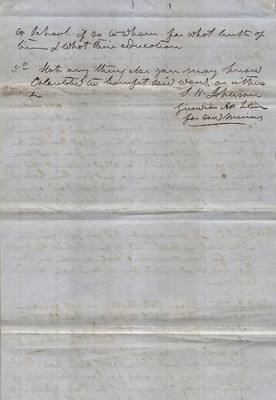 to School if so to whom for what length of
time & what their education
5th State any thing else you may know
Calculated to benefit said wards or either
&
Guardian Ad Litem
for said Minors